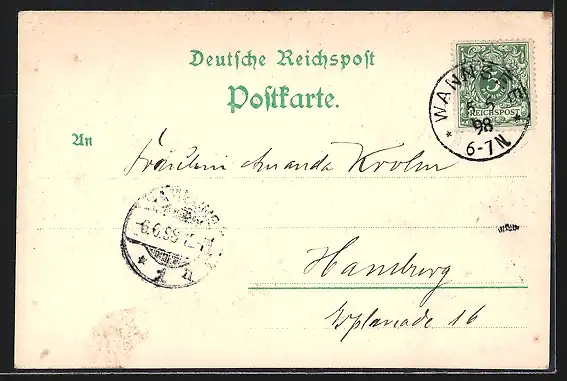 Deutsche Reichspost
Postkarte.
WANNSEE
5
REICHSPOST
5.6
98
6-7N
An
Fräulein Amanda Krohn
HAMBURG
6.6.98
* 1 n
Hamburg
Esplanade 16